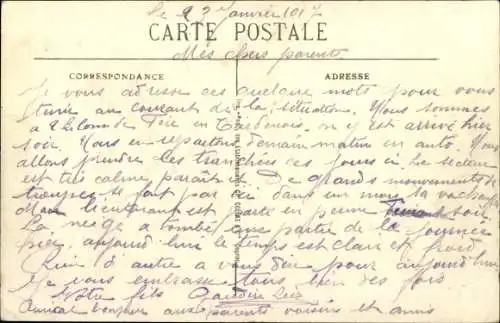 le 23 Janvier 1917
CARTE POSTALE
Mes chers parents
CORRESPONDANCE
ADRESSE
Je vous adresse ces quelque mots pour vous
tenir au courant de la situation. Nous sommes
a 2 kilom de Fère en Tardenois, on y est arrivé hier
soir. Nous en repartons demain matin en auto. Nous
allons prendre les tranchées ces jours ci. Le secteur
est tres calme parait-il De grands mouvements de
troupes se font par ici dans un mois
lieutenant est parti en perme soir.
La neige a tombé une partie de la journée
hier, aujourd'hui le temps est clair et froid
Rien d'autre a vous dire pour aujourd'hui
Je vous embrasse tous bien des fois
Votre fils
Amical bonjour aux parents voisins et amis